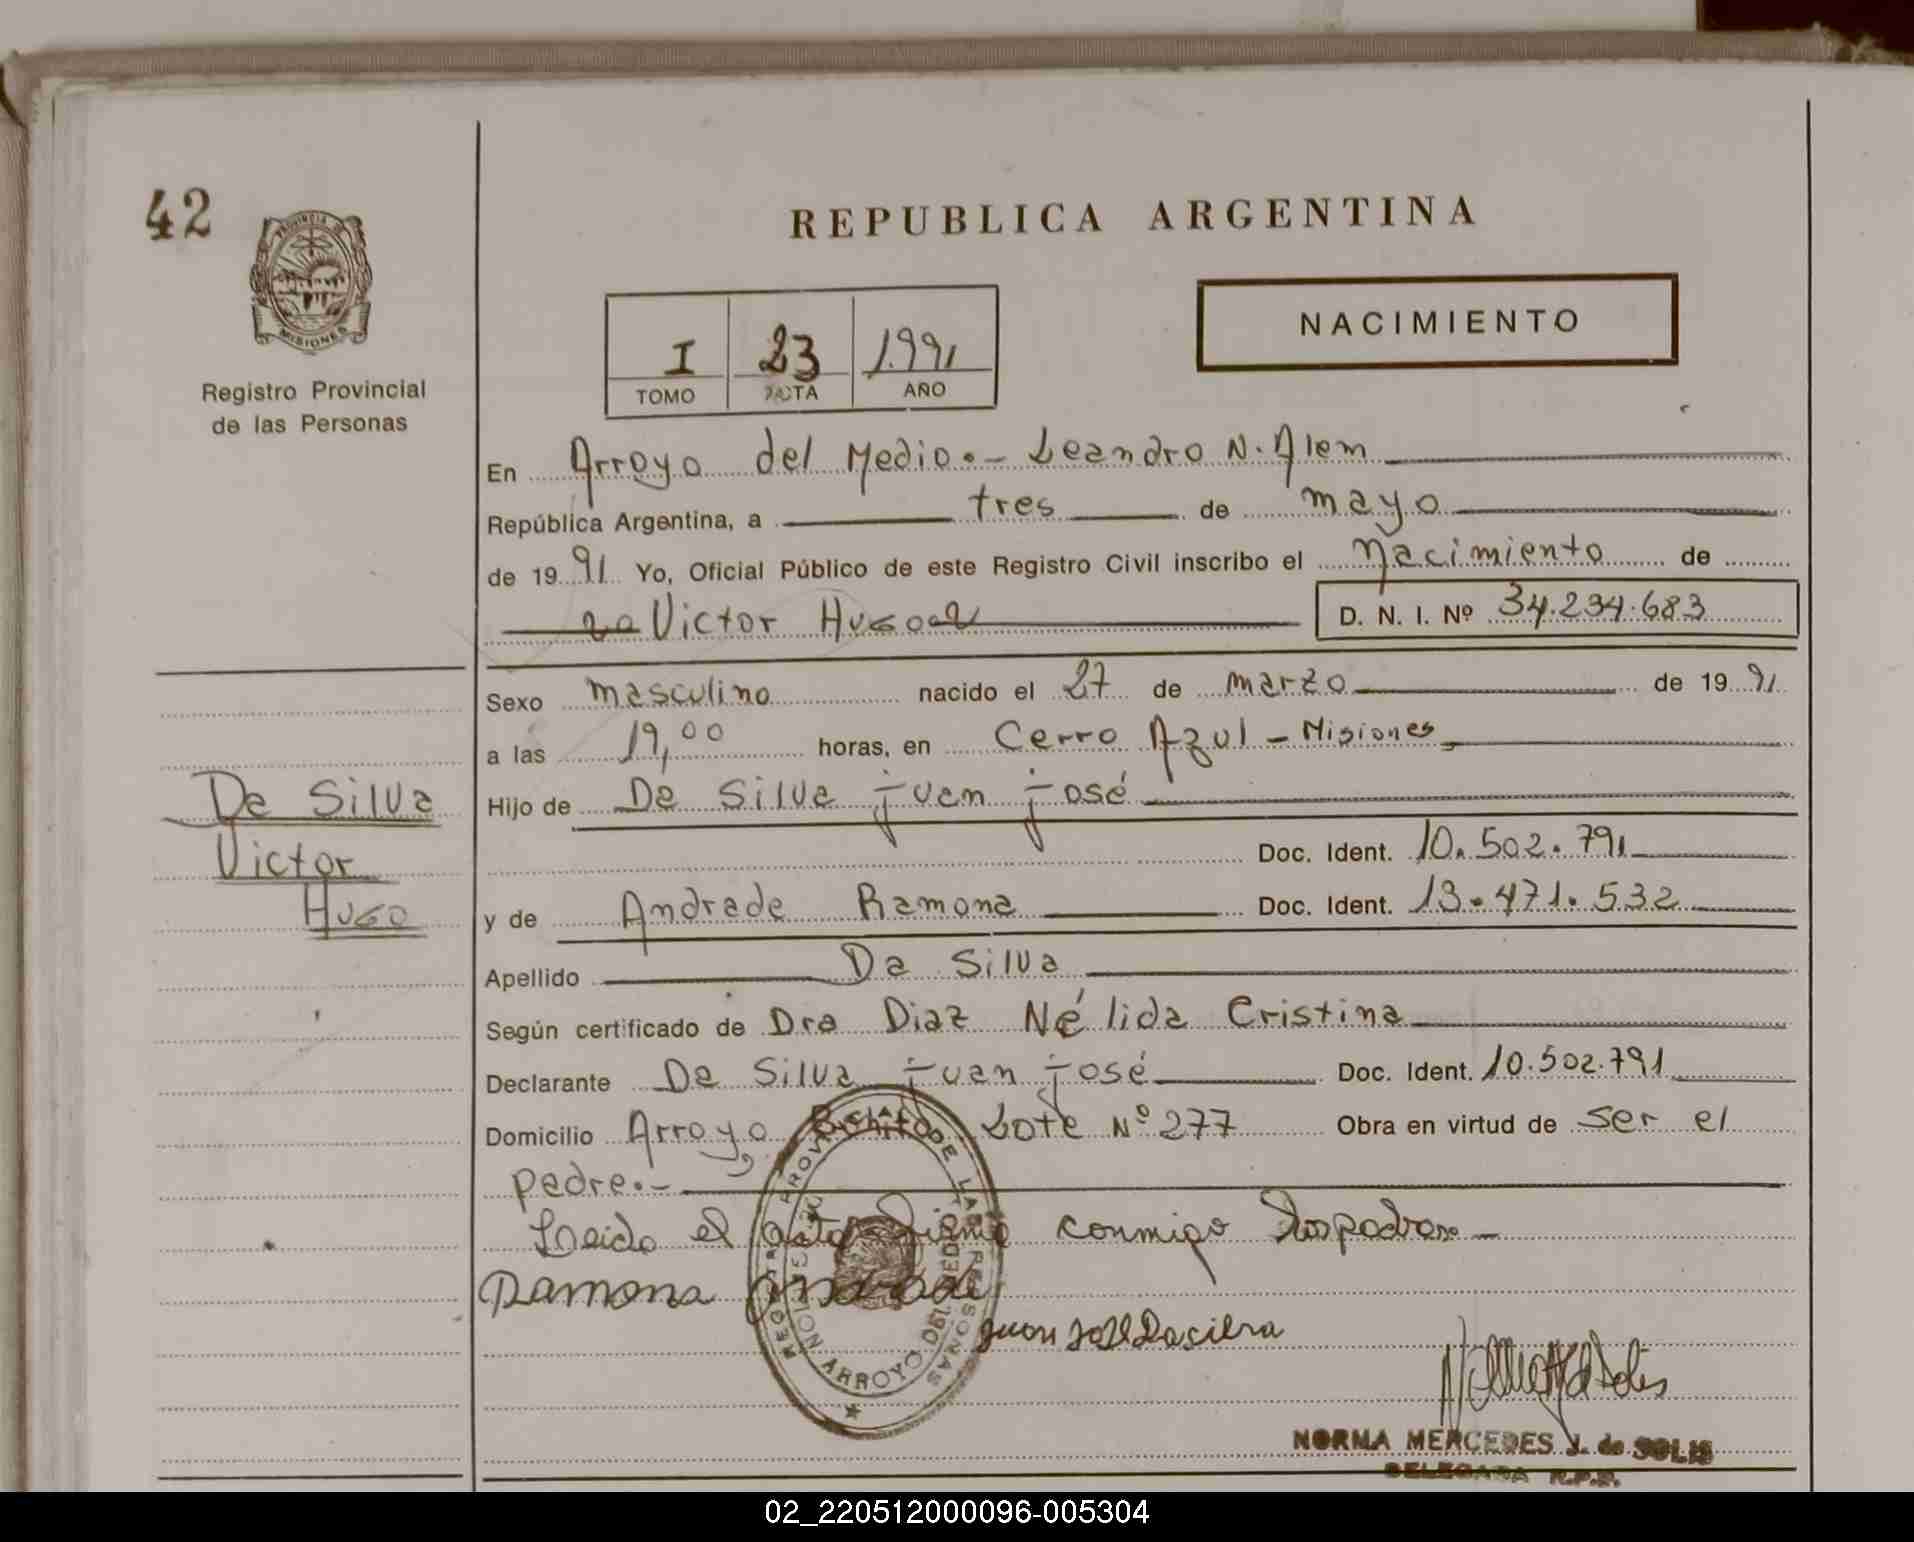 42
PROVINCIA DE
MISIONES
Registro Provincial
de las Personas
REPUBLICA ARGENTINA
NACIMIENTO
I 23 1991
TOMO ACTA AÑO
En Arroyo del Medio.- Leandro N. Alem
República Argentina, a tres de mayo
de 1991 Yo, Oficial Público de este Registro Civil inscribo el Nacimiento de
Victor Hugo D. N. I. Nº 34.234.683
Sexo masculino nacido el 27 de marzo de 1991
a las 19,00 horas, en Cerro Azul - Misiones
Da Silva
Victor
Hugo
Hijo de Da Silva juan josé
Doc. Ident. 10.502.791
y de Andrade Ramona Doc. Ident. 13.471.532
Apellido Da Silva
Según certificado de Dra Diaz Nélida Cristina
Declarante Da Silva juan josé Doc. Ident. 10.502.791
Domicilio Arroyo Lote Nº 277 Obra en virtud de ser el
padre.-
Leido el acta firma conmigo los padres -
Ramona Andrade
juan José Dasilva
NORMA MERCEDES J. de SOLIS
DELEGADA R.P.P.
02_220512000096-005304